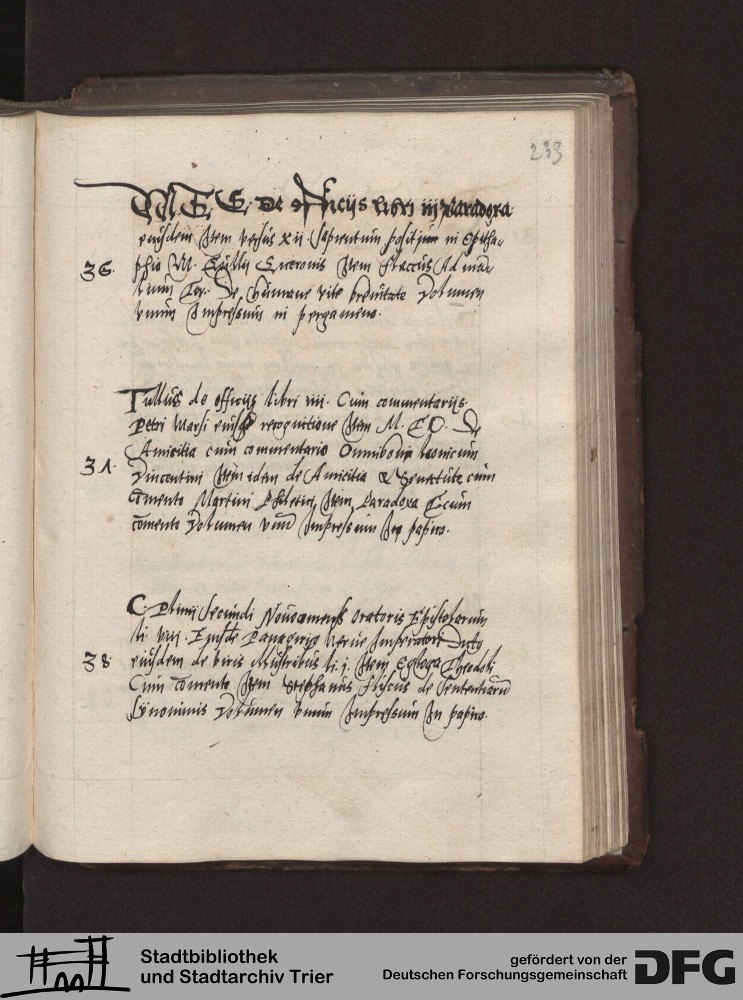 233
M T C De officijs libri iij paradoxa
eiusdem Item versus xii sapientum positum in Epitha-
36. phio M. Tullij Ciceronis Item flaccus Ad
De humane vite brevitate Volumen
vnum Impressum in pergameno.
Tullius de officijs libri iiii. Cum commentarijs
Petri Marsi eiusq recognitione Item M. T C. De
Amicitia cum commentario Omniboni leonicum
37. Vincentini Item idem de Amicitia & Senectute cum
comento Martini Phileticj Item Paradoxa Cum
comento Volumen vnū Impressum In papiro.
C. Plinii Secundi Novocomensis Oratoris Epistolarum
li. viii. Eiusdē Panagirico Nerue Imperatori
38. eiusdem de viris illustribus li. j. Item Egloga Theodoli
Cum comento Item Stephanus fliscus de Sententiarū
Synonimis Volumen vnum Impressum In papiro.
Stadtbibliothek
und Stadtarchiv Trier
gefördert von der
Deutschen Forschungsgemeinschaft
DFG